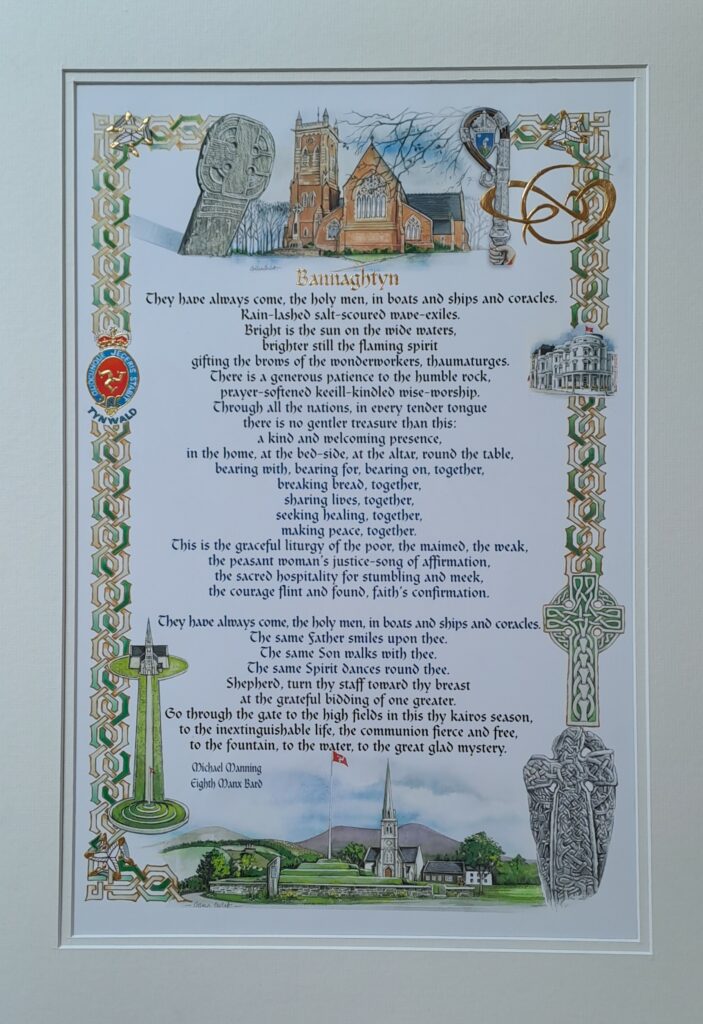 Bannaghtyn
They have always come, the holy men, in boats and ships and coracles.
Rain-lashed salt-scoured wave-exiles.
Bright is the sun on the wide waters,
brighter still the flaming spirit
gifting the brows of the wonderworkers, thaumaturges.
There is a generous patience to the humble rock,
prayer-softened keeill-kindled wise-worship.
Through all the nations, in every tender tongue
there is no gentler treasure than this:
a kind and welcoming presence,
in the home, at the bed-side, at the altar, round the table,
bearing with, bearing for, bearing on, together,
breaking bread, together,
sharing lives, together,
seeking healing, together,
making peace, together.
This is the graceful liturgy of the poor, the maimed, the weak,
the peasant woman's justice-song of affirmation,
the sacred hospitality for stumbling and meek,
the courage flint and found, faith's confirmation.
They have always come, the holy men, in boats and ships and coracles.
The same Father smiles upon thee.
The same Son walks with thee.
The same Spirit dances round thee.
Shepherd, turn thy staff toward thy breast
at the grateful bidding of one greater.
Go through the gate to the high fields in this thy kairos season,
to the inextinguishable life, the communion fierce and free,
to the fountain, to the water, to the great glad mystery.
Michael Manning
Eighth Manx Bard
QUOCUNQUE JECERIS STABIT
TYNWALD